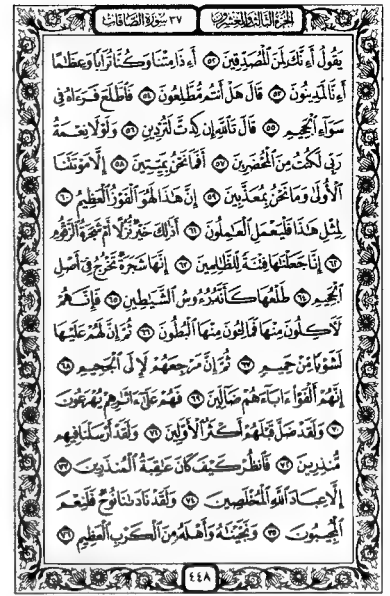 الجزء الثالث والعشرون ٣٧ سورة الصافات
يَقُولُ أَءِنَّكَ لَمِنَ ٱلْمُصَدِّقِينَ ۝٥٢ أَءِذَا مِتْنَا وَكُنَّا تُرَابًا وَعِظَٰمًا
أَءِنَّا لَمَدِينُونَ ۝٥٣ قَالَ هَلْ أَنتُم مُّطَّلِعُونَ ۝٥٤ فَٱطَّلَعَ فَرَءَاهُ فِى
سَوَآءِ ٱلْجَحِيمِ ۝٥٥ قَالَ تَٱللَّهِ إِن كِدتَّ لَتُرْدِينِ ۝٥٦ وَلَوْلَا نِعْمَةُ
رَبِّى لَكُنتُ مِنَ ٱلْمُحْضَرِينَ ۝٥٧ أَفَمَا نَحْنُ بِمَيِّتِينَ ۝٥٨ إِلَّا مَوْتَتَنَا
ٱلْأُولَىٰ وَمَا نَحْنُ بِمُعَذَّبِينَ ۝٥٩ إِنَّ هَٰذَا لَهُوَ ٱلْفَوْزُ ٱلْعَظِيمُ ۝٦٠
لِمِثْلِ هَٰذَا فَلْيَعْمَلِ ٱلْعَٰمِلُونَ ۝٦١ أَذَٰلِكَ خَيْرٌ نُّزُلًا أَمْ شَجَرَةُ ٱلزَّقُّومِ
۝٦٢ إِنَّا جَعَلْنَٰهَا فِتْنَةً لِّلظَّٰلِمِينَ ۝٦٣ إِنَّهَا شَجَرَةٌ تَخْرُجُ فِىٓ أَصْلِ
ٱلْجَحِيمِ ۝٦٤ طَلْعُهَا كَأَنَّهُۥ رُءُوسُ ٱلشَّيَٰطِينِ ۝٦٥ فَإِنَّهُمْ
لَءَاكِلُونَ مِنْهَا فَمَالِـُٔونَ مِنْهَا ٱلْبُطُونَ ۝٦٦ ثُمَّ إِنَّ لَهُمْ عَلَيْهَا
لَشَوْبًا مِّنْ حَمِيمٍ ۝٦٧ ثُمَّ إِنَّ مَرْجِعَهُمْ لَإِلَى ٱلْجَحِيمِ ۝٦٨
إِنَّهُمْ أَلْفَوْا۟ ءَابَآءَهُمْ ضَآلِّينَ ۝٦٩ فَهُمْ عَلَىٰٓ ءَاثَٰرِهِمْ يُهْرَعُونَ
۝٧٠ وَلَقَدْ ضَلَّ قَبْلَهُمْ أَكْثَرُ ٱلْأَوَّلِينَ ۝٧١ وَلَقَدْ أَرْسَلْنَا فِيهِم
مُّنذِرِينَ ۝٧٢ فَٱنظُرْ كَيْفَ كَانَ عَٰقِبَةُ ٱلْمُنذَرِينَ ۝٧٣
إِلَّا عِبَادَ ٱللَّهِ ٱلْمُخْلَصِينَ ۝٧٤ وَلَقَدْ نَادَىٰنَا نُوحٌ فَلَنِعْمَ
ٱلْمُجِيبُونَ ۝٧٥ وَنَجَّيْنَٰهُ وَأَهْلَهُۥ مِنَ ٱلْكَرْبِ ٱلْعَظِيمِ ۝٧٦
٤٤٨